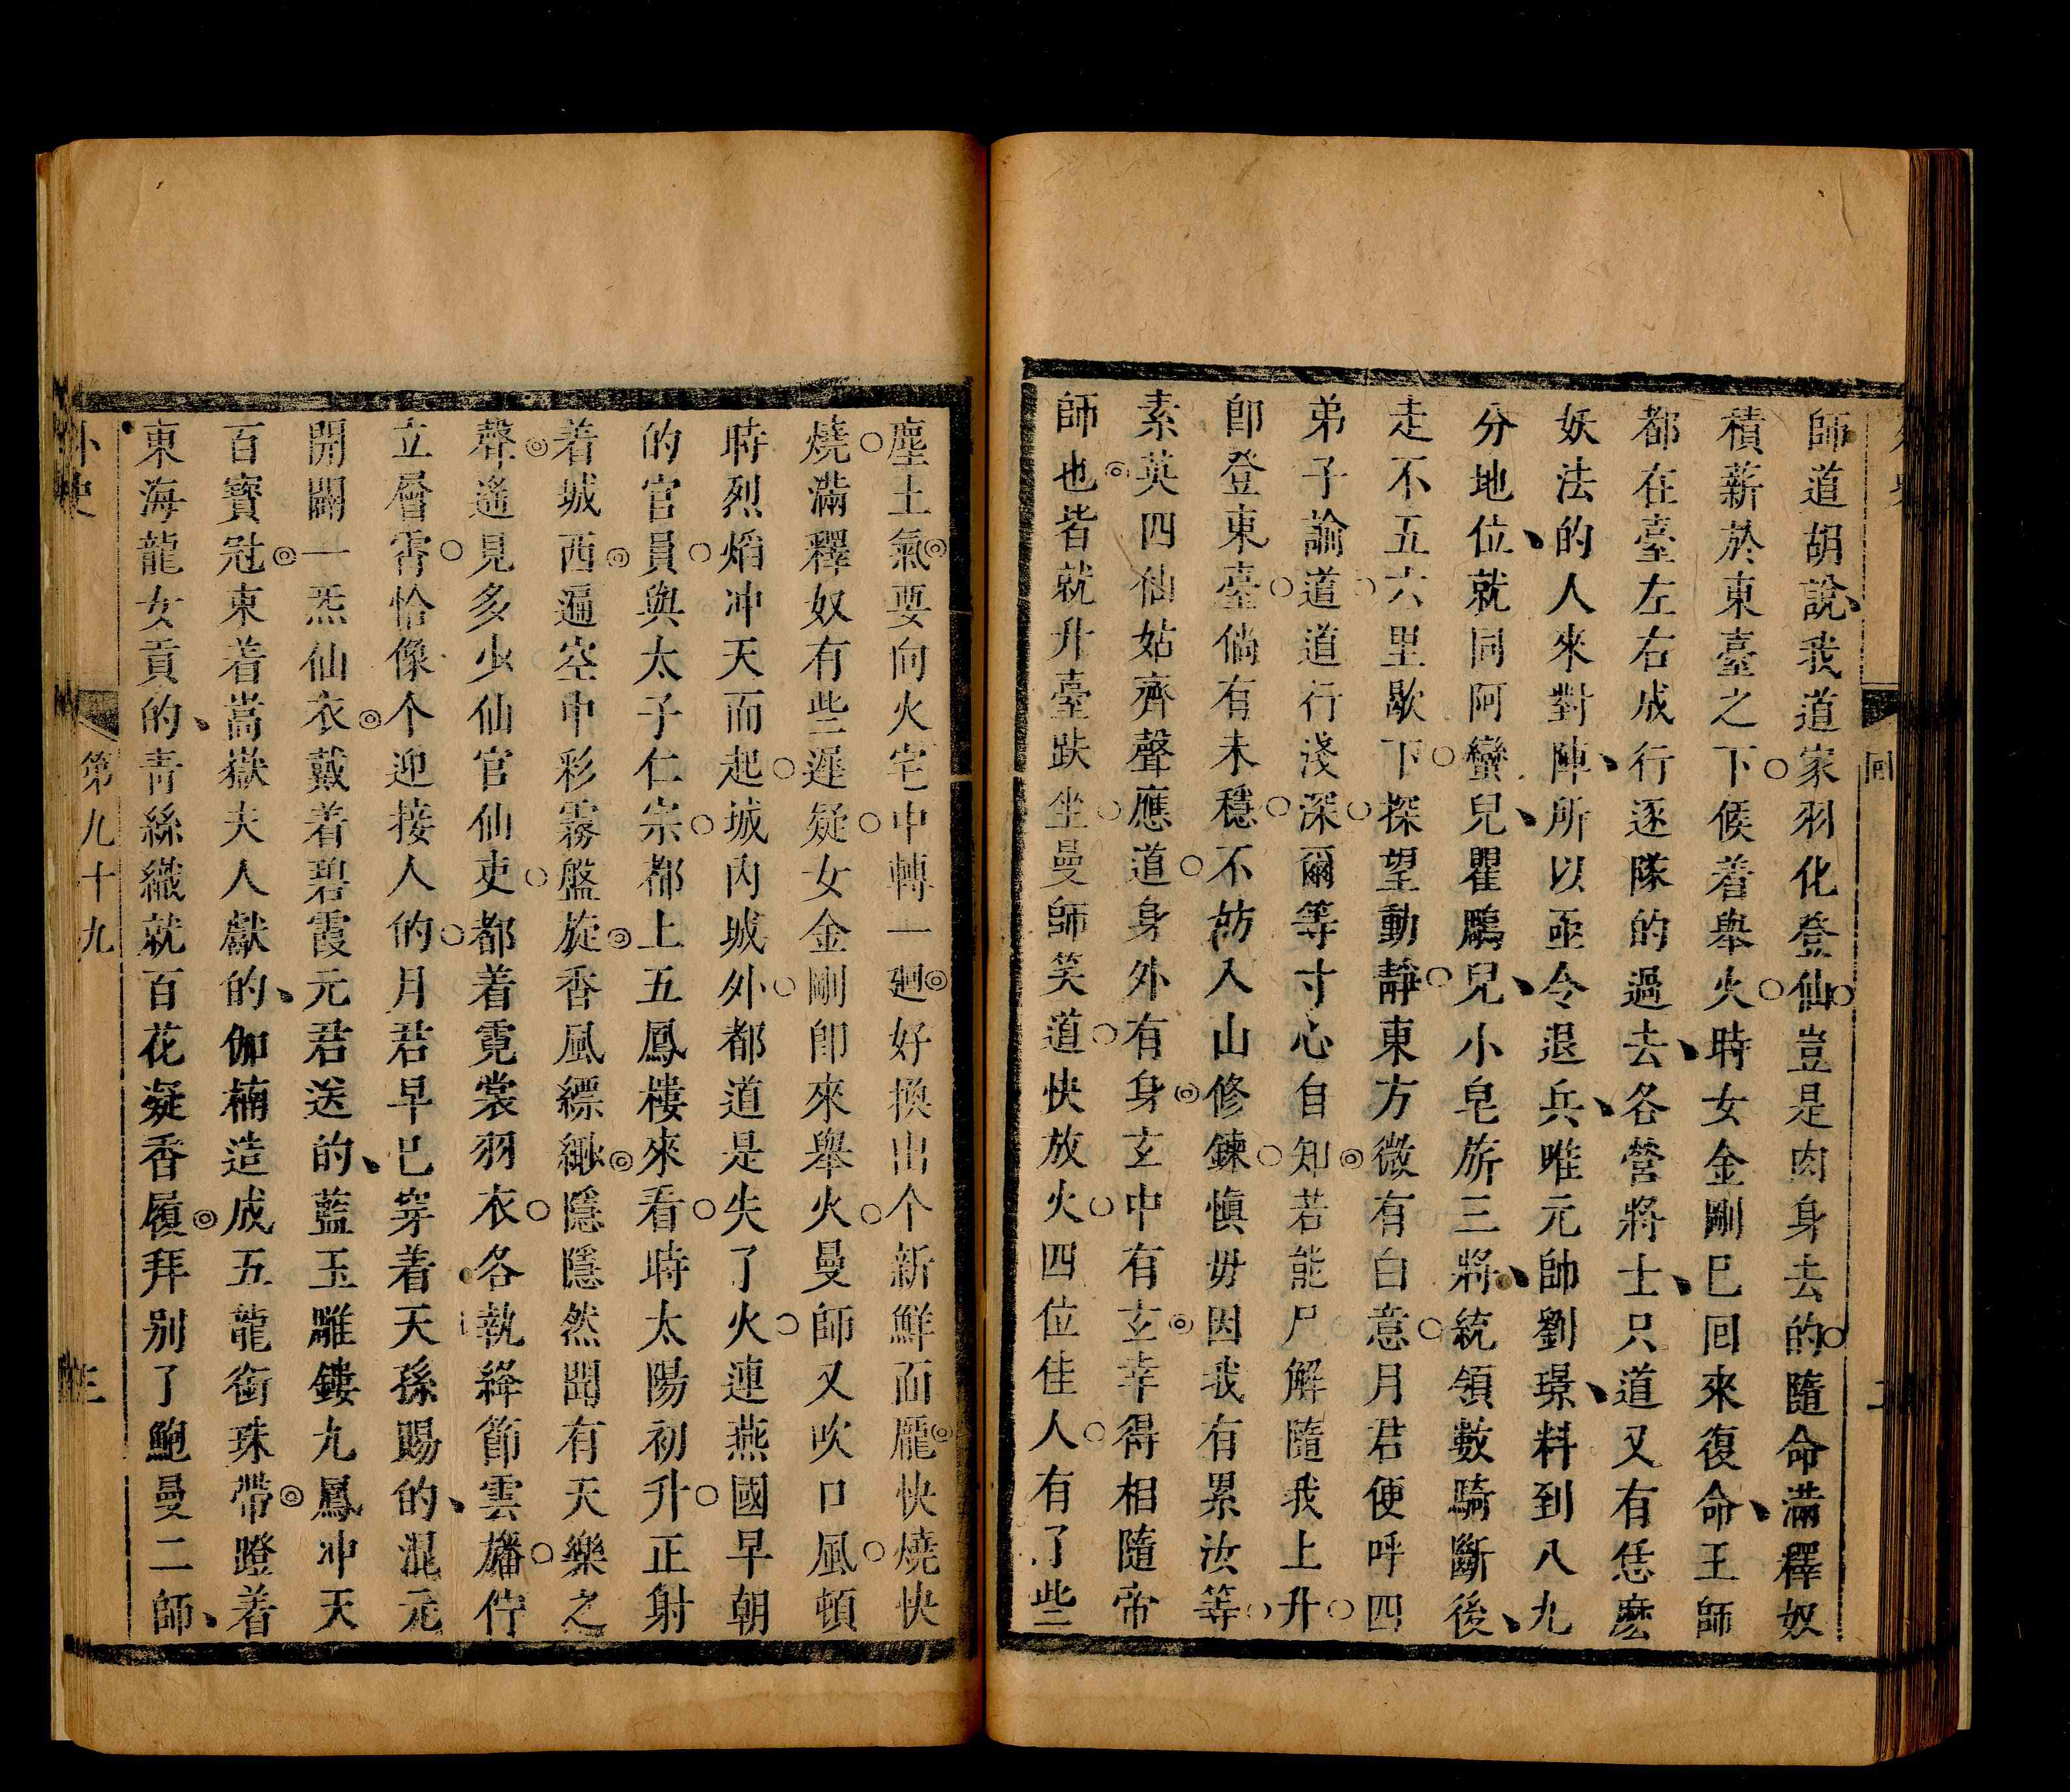 師道胡說我道家羽化登仙豈是肉身去的隨命滿釋奴
積薪於東臺之下候着舉火時女金剛已回來復命王師
都在臺左右成行逐隊的過去各營將士只道又有恁麽
妖法的人來對陣所以亟令退兵唯元帥劉璟料到八九
分地位就同阿蠻兒瞿鵰兒小皂旂三將統領數騎斷後
走不五六里歇下探望動靜東方微有白意月君便呼四
弟子諭道道行淺深爾等寸心自知若能尸解隨我上升
卽登東臺倘有未穩不妨入山修鍊愼毋因我有累汝等
素英四仙姑齊聲應道身外有身玄中有玄幸得相隨帝
師也皆就升臺趺坐曼師笑道快放火四位佳人有了些
塵土氣要向火宅中轉一廻好換出个新鮮面龐快燒快
燒滿釋奴有些遲疑女金剛卽來舉火曼師又吹口風頓
時烈焰冲天而起城內城外都道是失了火連燕國早朝
的官員與太子仁宗都上五鳳樓來看時太陽初升正射
着城西遍空中彩霧盤旋香風縹緲隱隱然聞有天樂之
聲遙見多少仙官仙吏都着霓裳羽衣各執絳節雲旛佇
立層霄恰像个迎接人的月君早已穿着天孫賜的混元
開闢一炁仙衣戴着碧霞元君送的藍玉雕鏤九鳳冲天
百寶冠束着嵩嶽夫人獻的伽楠造成五龍銜珠帶蹬着
東海龍女貢的靑絲織就百花凝香履拜别了鮑曼二師
外史
第九十九
三